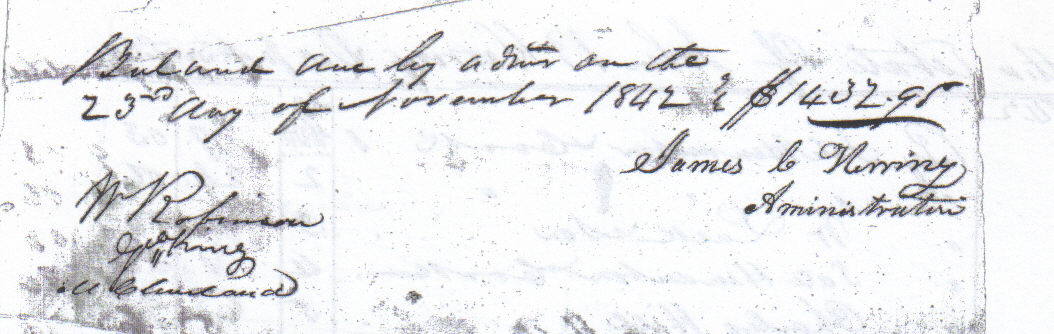 Balance due by admr on the
23rd day of November 1842 $1432.95
James C Herring
Aministrator
W Robinson
King